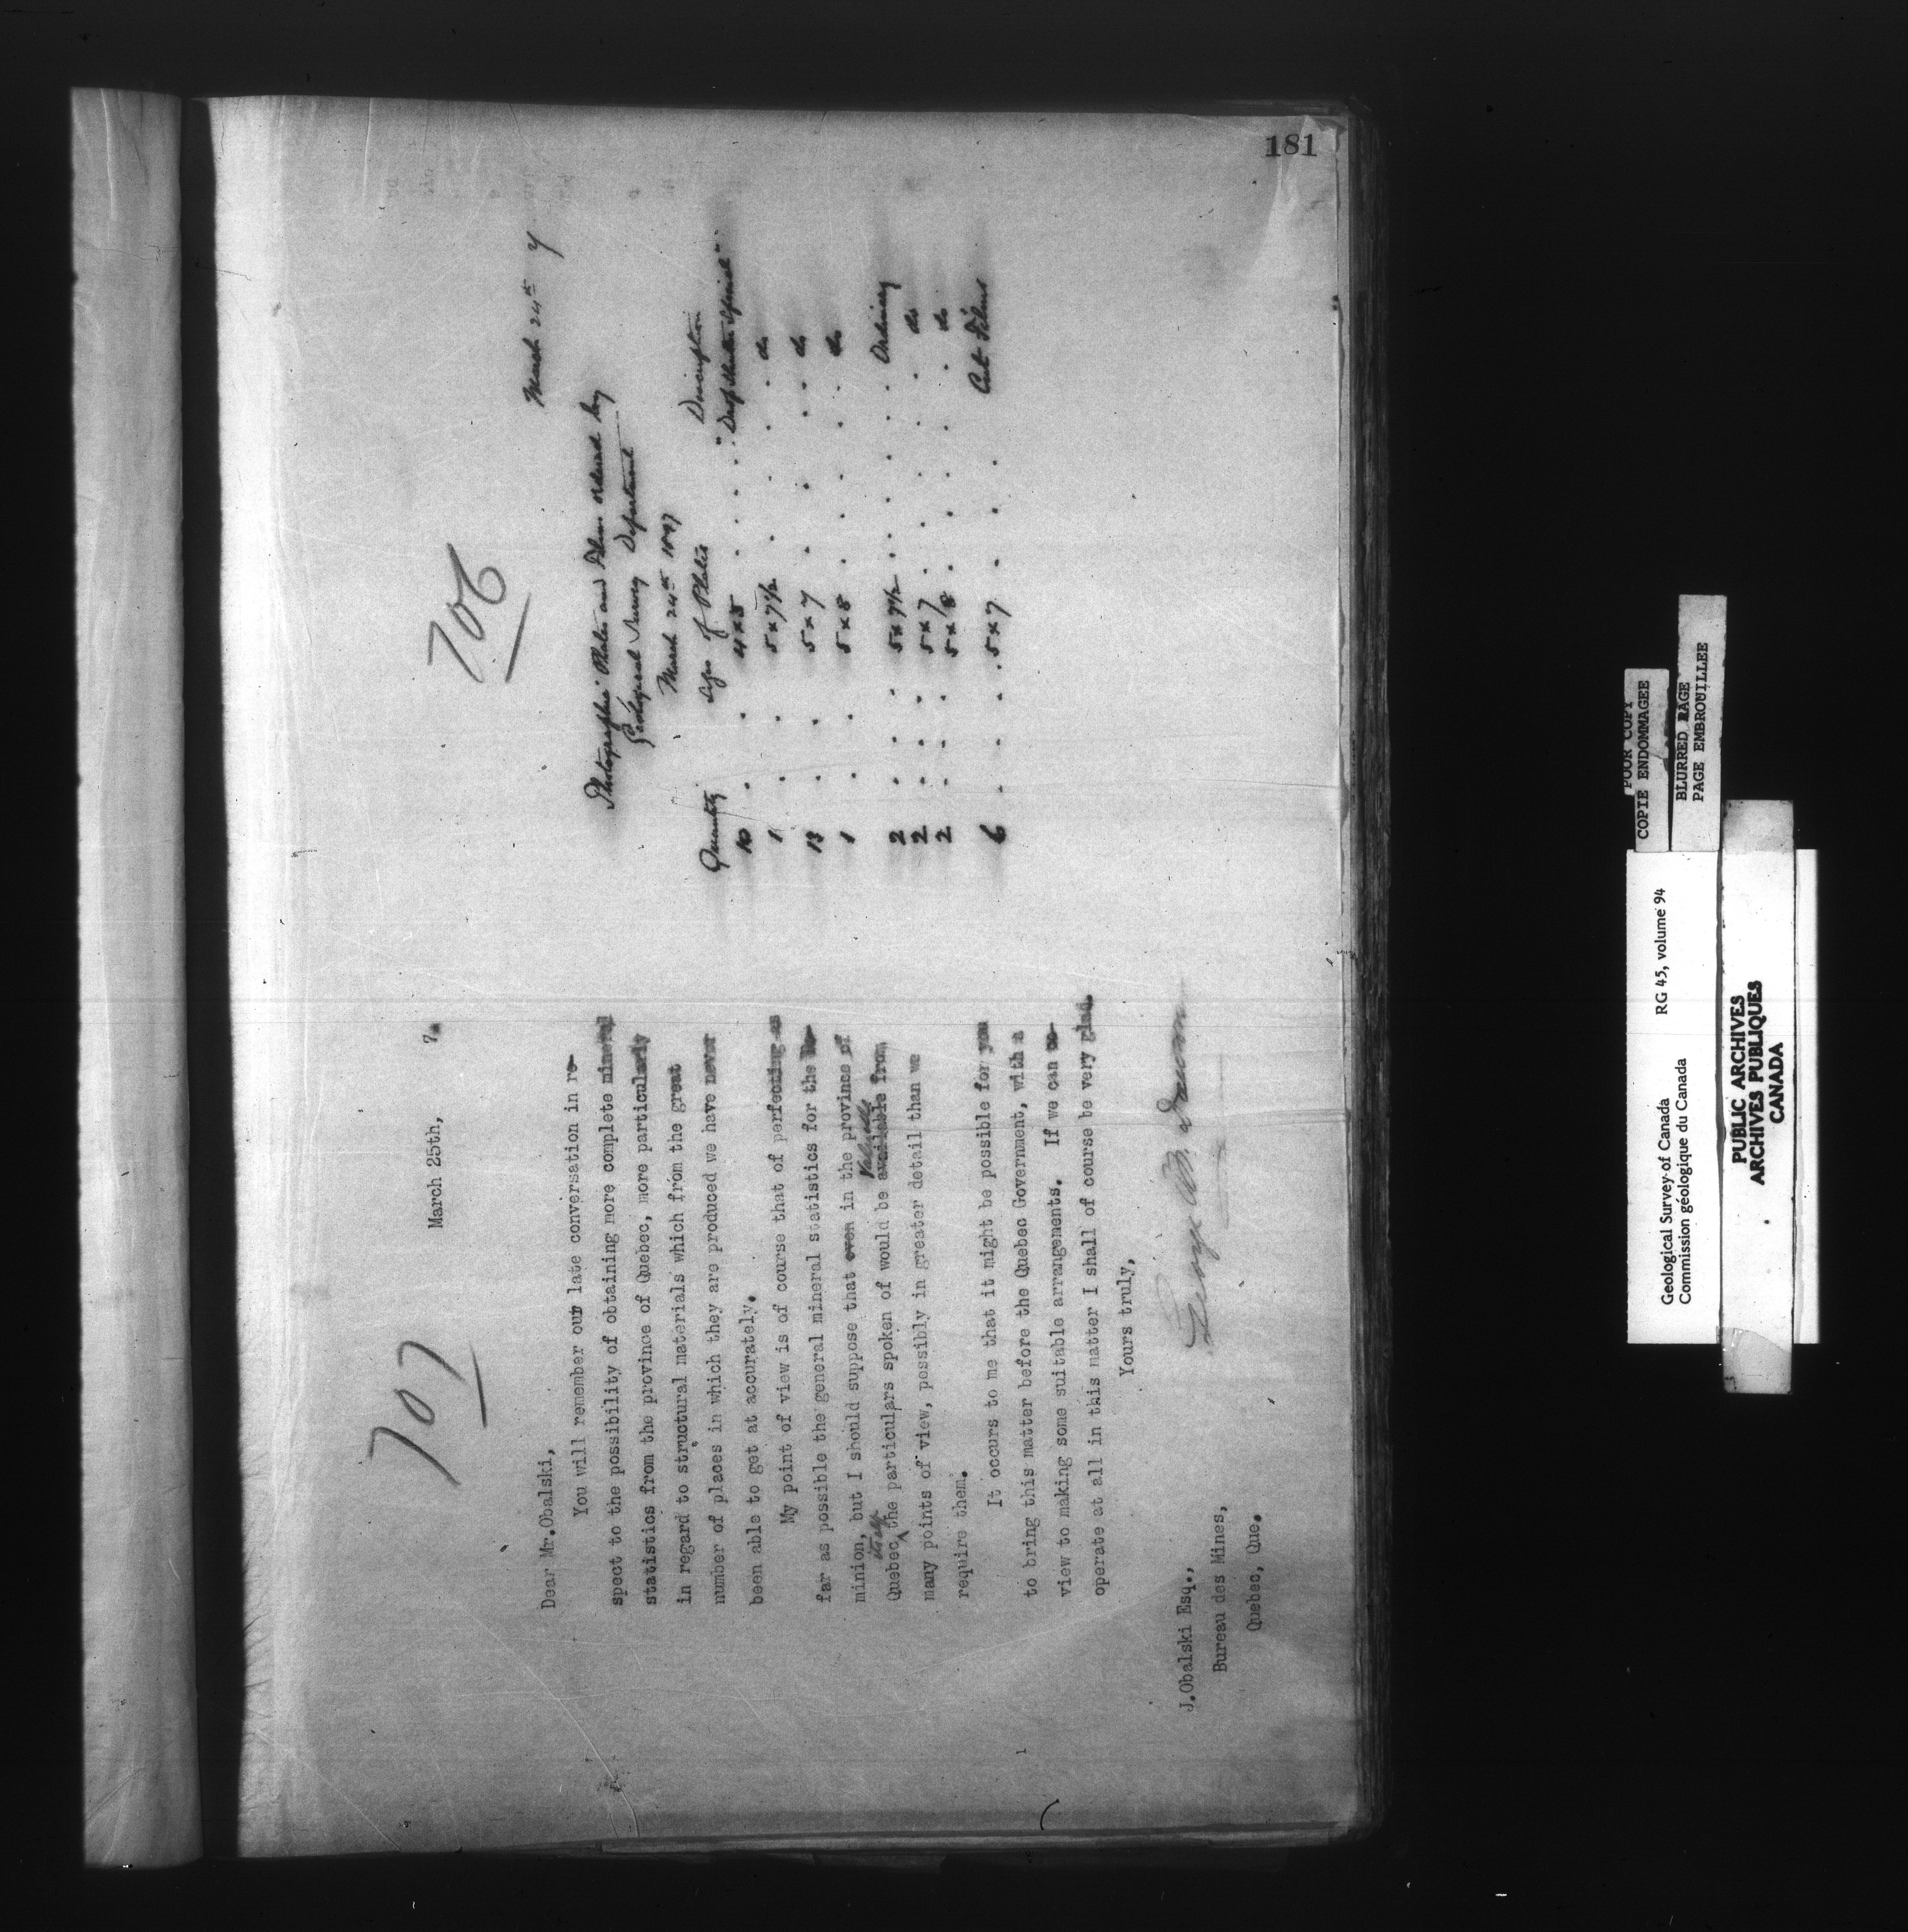 181
707
March 25th, 7.
Dear Mr.Obalski,
You will remember our late conversation in re-
spect to the possibility of obtaining more complete mineral
statistics from the province of Quebec, more particularly
in regard to structural materials which from the great
number of places in which they are produced we have never
been able to get at accurately.
My point of view is of course that of perfecting as
far as possible the general mineral statistics for the Do-
minion, but I should suppose that even in the province of
Quebec itself the particulars spoken of would be available valuable from
many points of view, possibly in greater detail than we
require them.
It occurs to me that it might be possible for you
to bring this matter before the Quebec Government, with a
view to making some suitable arrangements. If we can co-
operate at all in this matter I shall of course be very glad.
Yours truly,
George M. Dawson
J.Obalski Esq.,
Bureau des Mines,
Quebec, Que.
706
March 24th 7
Photographic Plates and Films ordered by
Geological Survey Department
March 24th 1897
Quantity Sizes of Plates Description
10 . . 4x5 . . . . "Drop Shutter Special"
1 . . 5x7½ . . . . do
13 . . 5x7 . . . . do
1 . . 5x8 . . . . do
2 . . . 5x7½ . . . . Ordinary
2 . . . 5x7 . . . . do
2 . . . 5x8 . . . . do
6 . . . . 5x7 . . . Cut Films
Geological Survey of Canada RG 45, volume 94
Commission géologique du Canada
POOR COPY
COPIE ENDOMMAGEE
BLURRED PAGE
PAGE EMBROUILLEE
PUBLIC ARCHIVES
ARCHIVES PUBLIQUES
CANADA